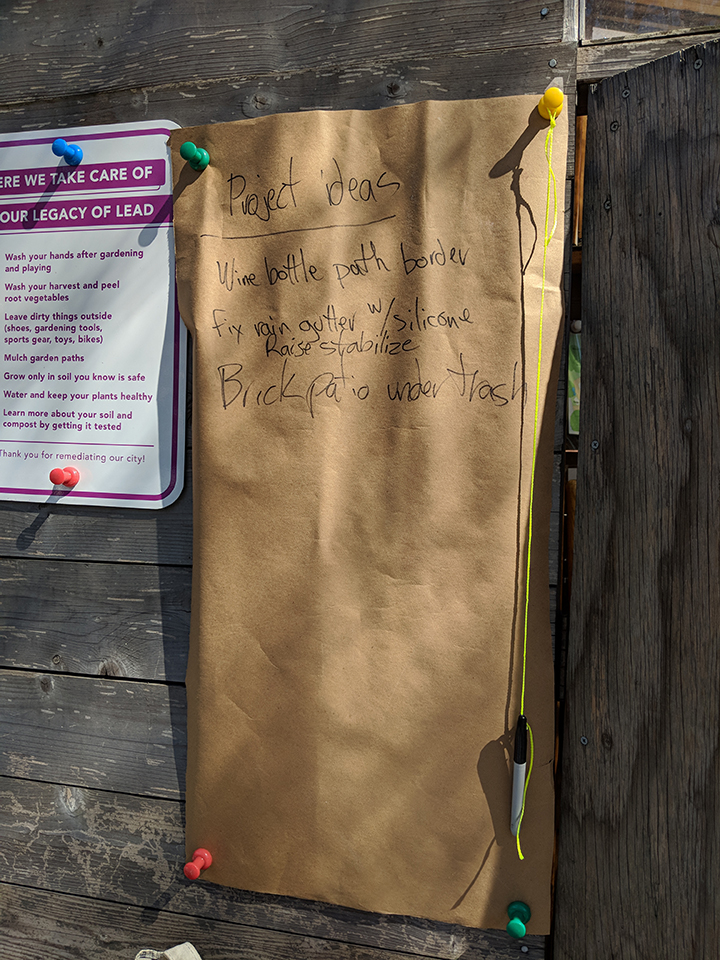 ERE WE TAKE CARE OF
OUR LEGACY OF LEAD
Wash your hands after gardening
and playing
Wash your harvest and peel
root vegetables
Leave dirty things outside
(shoes, gardening tools,
sports gear, toys, bikes)
Mulch garden paths
Grow only in soil you know is safe
Water and keep your plants healthy
Learn more about your soil and
compost by getting it tested
Thank you for remediating our city!
Project ideas
Wine bottle path border
fix rain gutter w/ silicone
Raise stabilize
Brick patio under trash